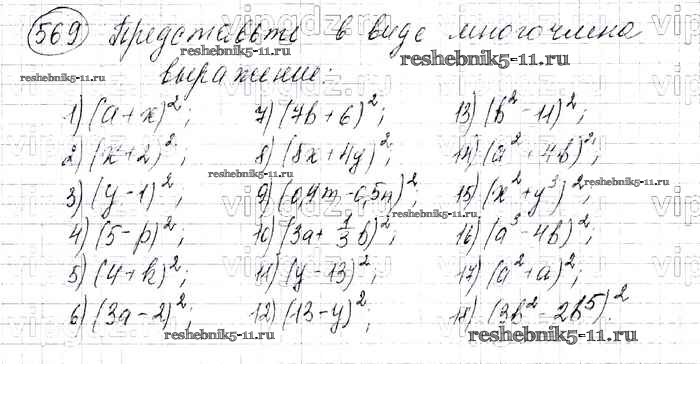 569 Представьте в виде многочлена
reshebnik5-11.ru
reshebnik5-11.ru
reshebnik5-11.ru
выражение:
1) (a+x)²; 7) (7b+6)²; 13) (b²-11)²;
2) (x+2)²; 8) (8x+4y)²; 14) (a²+4b)²;
reshebnik5-11.ru
reshebnik5-11.ru
3) (y-1)²; 9) (0,4m-0,5n)²; 15) (x²+y³)²;
reshebnik5-11.ru
4) (5-p)²; 10) (3a+1/3b)²; 16) (a³-4b)²;
5) (4+k)²; 11) (y-13)²; 17) (a²+a)²;
6) (3a-2)²; 12) (-13-y)²; 18) (3b²-2b⁵)².
reshebnik5-11.ru
reshebnik5-11.ru